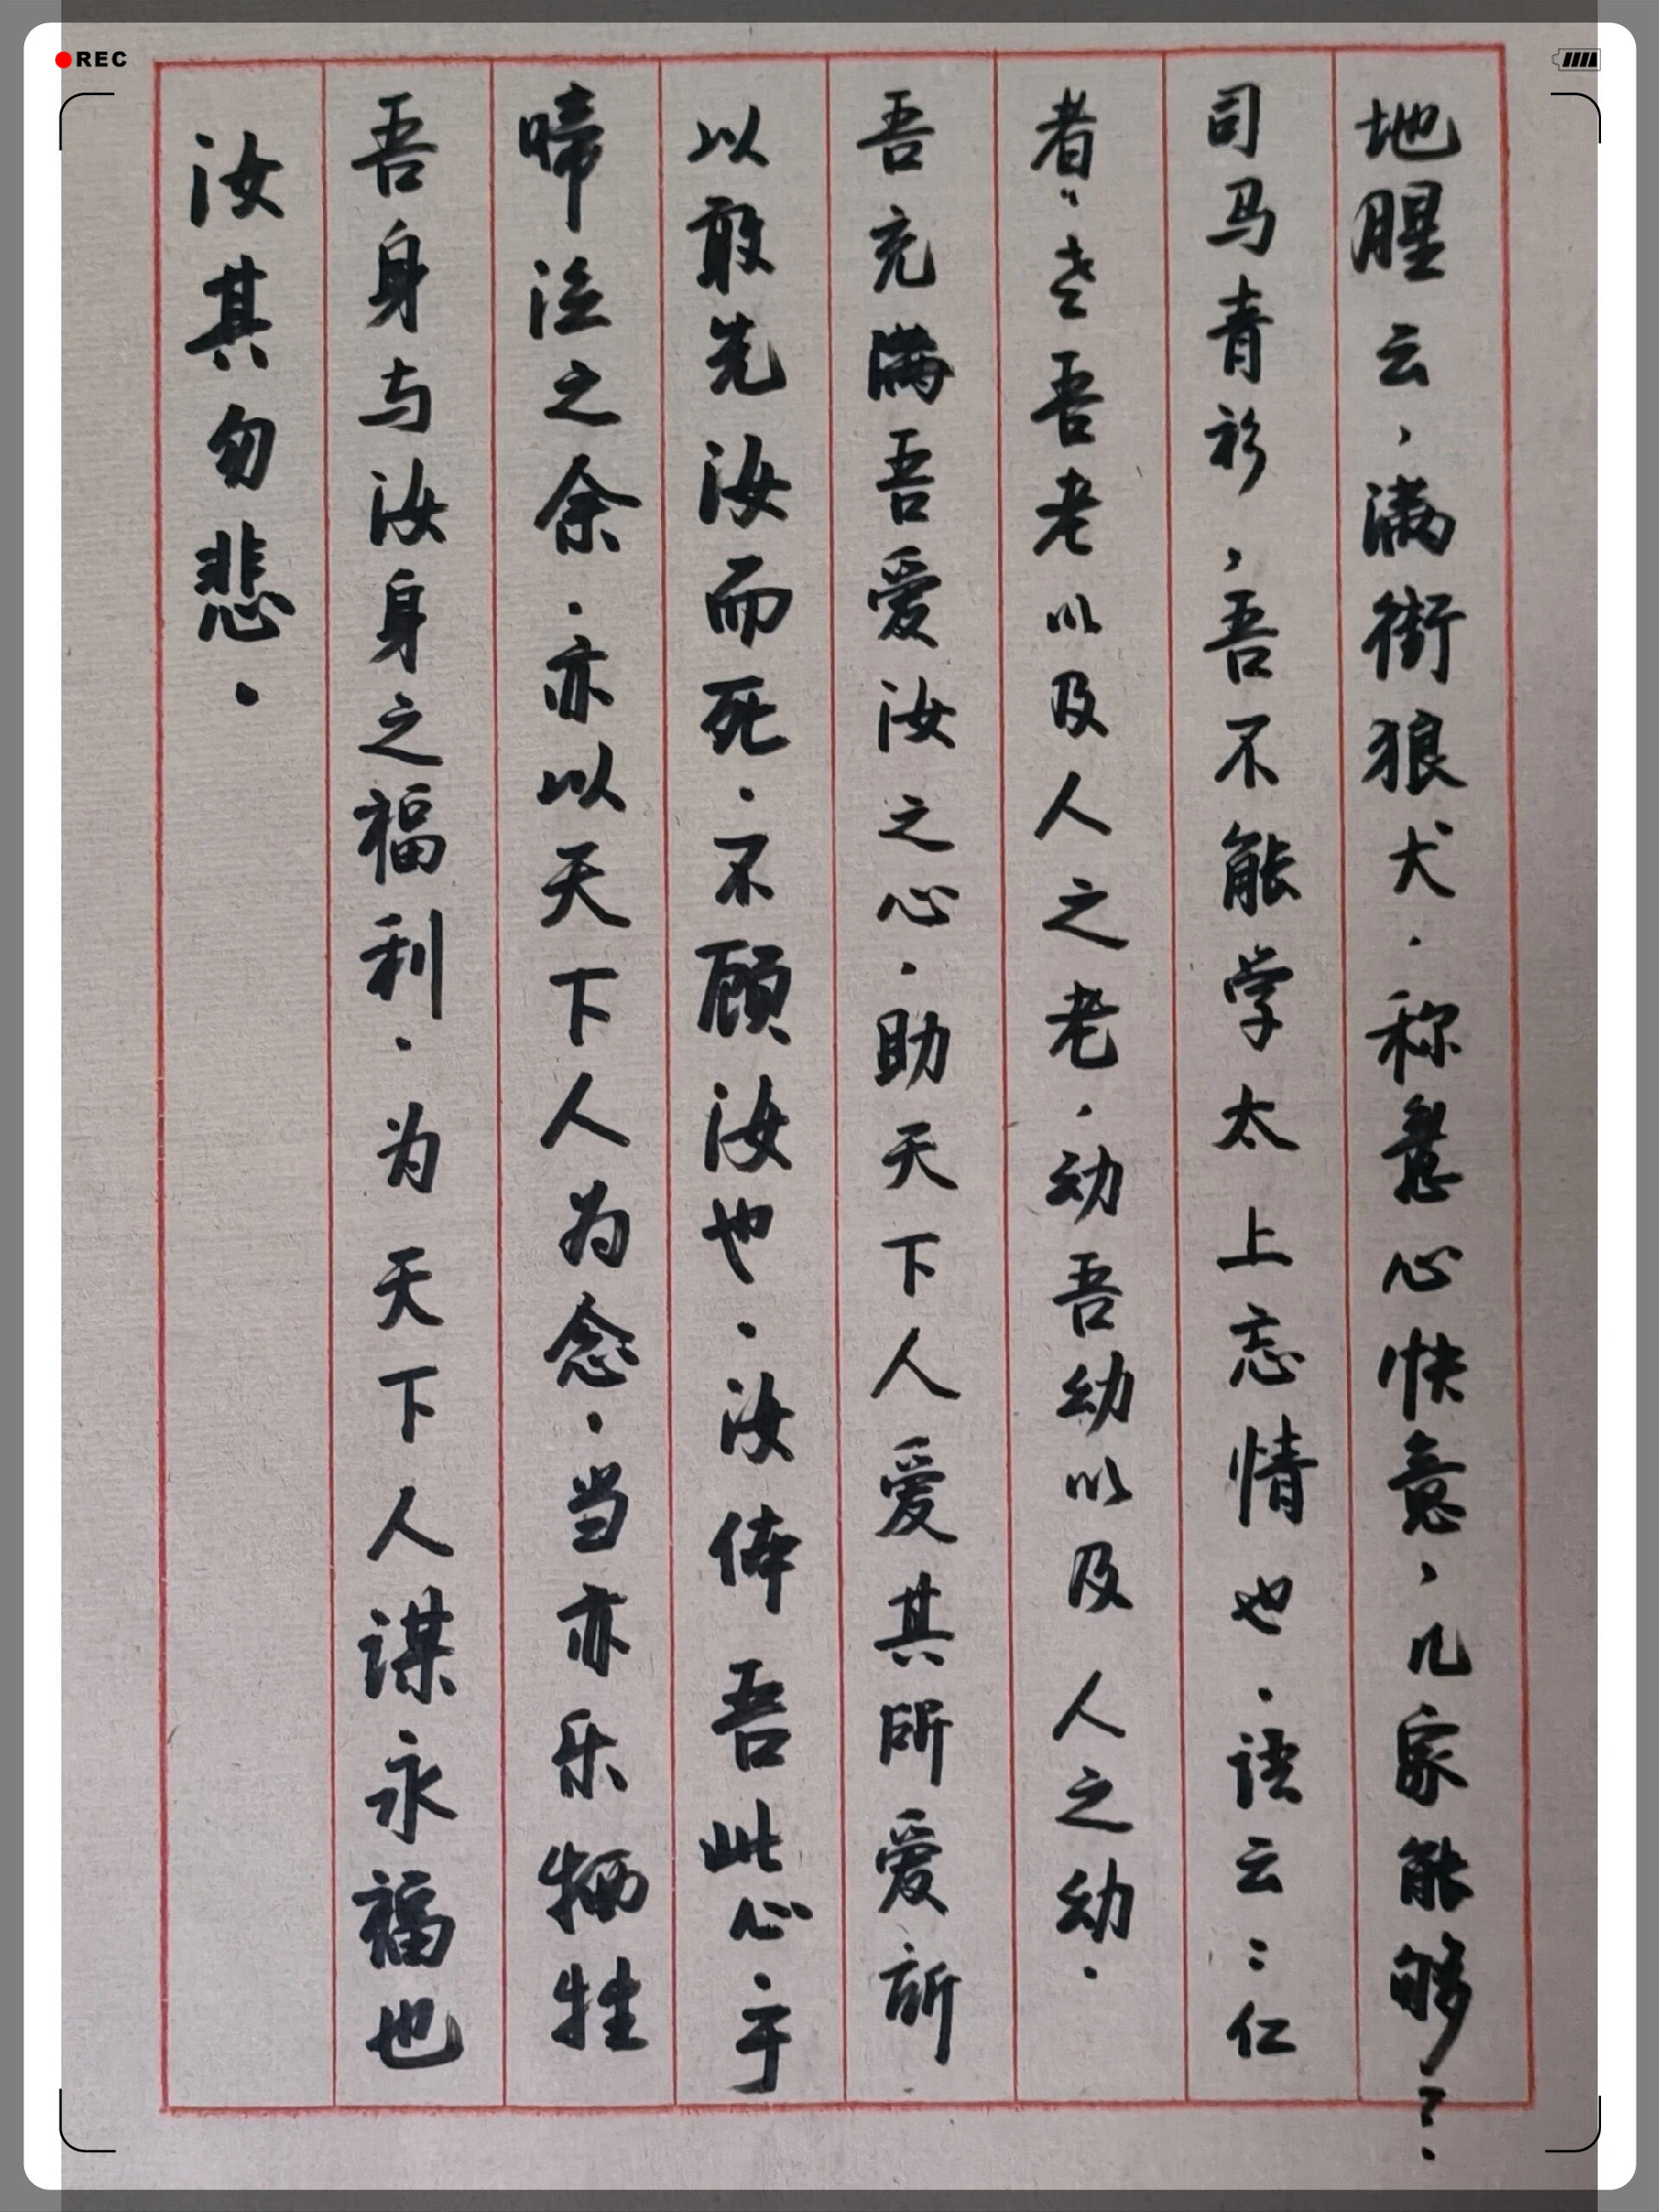 REC
地腥云，满街狼犬．称心快意，几家能够？．
司马青衫，吾不能学太上忘情也．语云：仁
者“老吾老以及人之老．幼吾幼以及人之幼．
吾充满吾爱汝之心．助天下人爱其所爱所
以敢先汝而死．不顾汝也．汝体吾此心．于
啼泣之余．亦以天下人为念．当亦乐牺牲
吾身与汝身之福利．为天下人谋永福也
汝其勿悲．